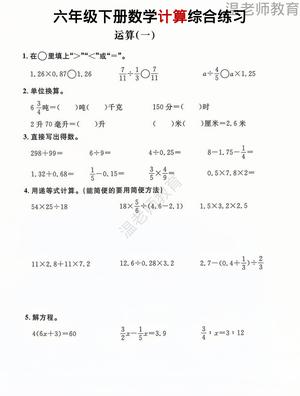 温老师教育
六年级下册数学计算综合练习
运算(一)
1. 在○里填上“>”“<”或“=”。
1.26×0.87○1.26 7/11÷1/3○7/11 a÷4/5○a×1.25
2. 单位换算。
6 3/4吨=( )吨( )千克 150分=( )时
2升70毫升=( )升 ( )米( )厘米=2.6米
3. 直接写出得数。
298+99= 6÷9= 4÷0.25= 8-1.75-1/4=
1.32+0.68= 1/5-0.15= 3/4÷1/8= 0.5×7.8×2=
4. 用递等式计算。(能简便的要用简便方法)
54×25÷18 18×5/6+(4.6-2.1) 1.5×3.2×2.5
11×2.8+11×7.2 12.6÷0.28×3.2 2.7-(0.4+1/3)÷2/3
5. 解方程。
4(6x+3)=60 3/2x-1/5x=3.9 3/4:x=3:12
温老师教育